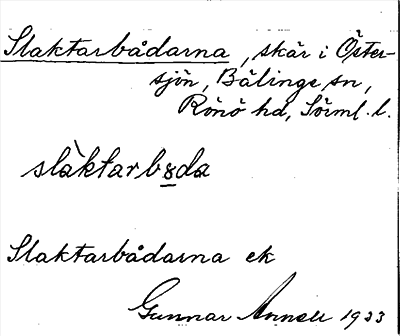 Slaktarbådarna, skär i Öster-
sjön, Bälinge sn,
Rönö hd, Sörml. l.
slàktarbo̲da
Slaktarbådarna ek
Gunnar Annell 1933